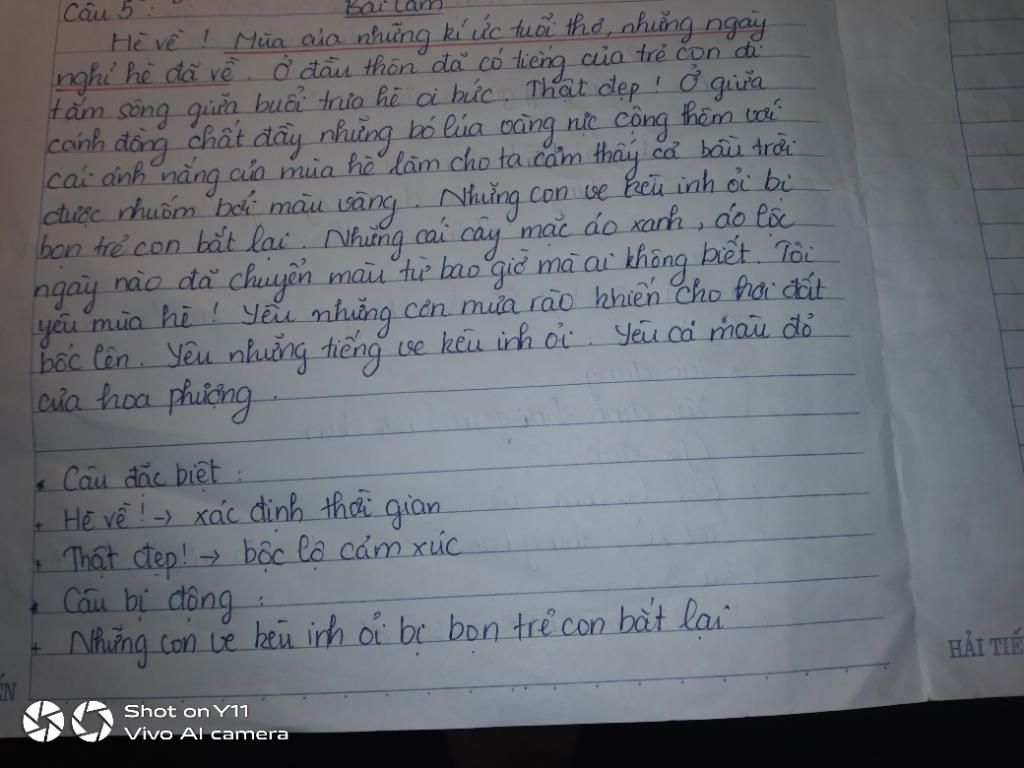 Câu 5:
Bài làm
Hè về! Mùa của những kí ức tuổi thơ, những ngày
nghỉ hè đã về. Ở đầu thôn đã có tiếng của trẻ con đi
tắm sông giữa buổi trưa hè oi bức. Thật đẹp! Ở giữa
cánh đồng chất đầy những bó lúa vàng rực cộng thêm với
cái ánh nắng của mùa hè làm cho ta cảm thấy cả bầu trời
được nhuốm bởi màu vàng. Những con ve kêu inh ỏi bị
bọn trẻ con bắt lại. Những cái cây mặc áo xanh, áo lốc
ngày nào đã chuyển màu từ bao giờ mà ai không biết. Tôi
yêu mùa hè! Yêu những cơn mưa rào khiến cho hơi đất
bốc lên. Yêu những tiếng ve kêu inh ỏi. Yêu cả màu đỏ
của hoa phượng.
* Câu đặc biệt:
+ Hè về! → xác định thời gian
+ Thật đẹp! → bộc lộ cảm xúc
* Câu bị động:
+ Những con ve kêu inh ỏi bị bọn trẻ con bắt lại
HẢI TIẾ
ẾN
Shot on Y11
Vivo AI camera